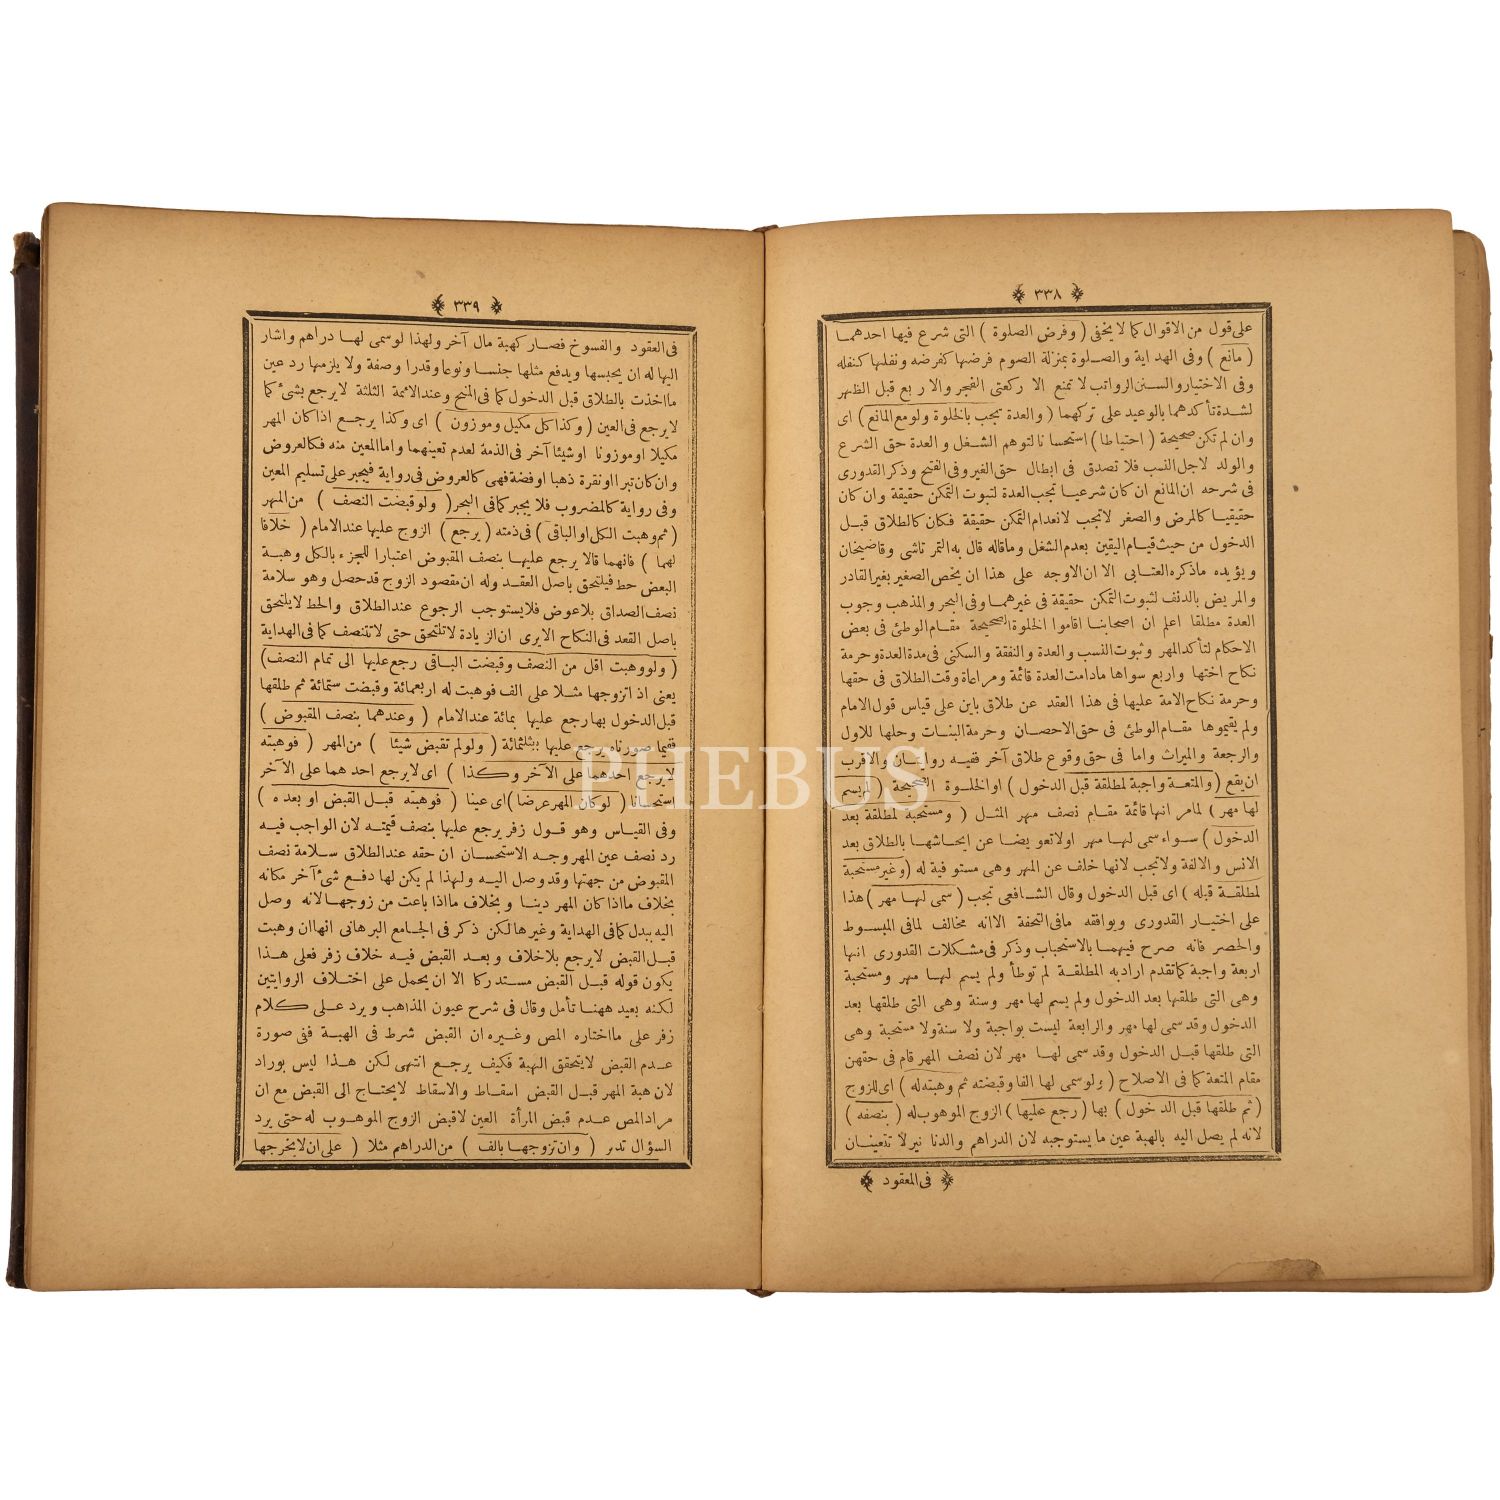 ٣٣٨
على قول من الاقوال كما لا يخفى ( وفرض الصلوة ) التى شرع فيها احدهما
( مانع ) وفى الهداية والصلوة بمنزلة الصوم فرضها كفرضه ونفلها كنفله
وفى الاختيار والسنن الرواتب لا تمنع الا ركعتى الفجر والاربع قبل الظهر
لشدة تأكدهما بالوعيد على تركهما ( والعدة تجب بالخلوة ولو مع المانع ) اى
وان لم تكن صحيحة ( احتياطا ) استحسانا لتوهم الشغل والعدة حق الشرع
والولد لاجل النسب فلا تصدق فى ابطال حق الغير وفى الفتح وذكر القدورى
فى شرحه ان المانع ان كان شرعيا تجب العدة لثبوت التمكن حقيقة وان كان
حقيقيا كالمرض والصغر لا تجب لانعدام التمكن حقيقة فكان كالطلاق قبل
الدخول من حيث قيام اليقين بعدم الشغل وماقاله قال به التمر تاشى وقاضيخان
ويؤيده ماذكره العتابى الا ان الاوجه على هذا ان يخص الصغير بغير القادر
والمريض بالدنف لثبوت التمكن حقيقة فى غيرهما وفى البحر والمذهب وجوب
العدة مطلقا اعلم ان اصحابنا اقاموا الخلوة الصحيحة مقام الوطئ فى بعض
الاحكام لتأكد المهر وثبوت النسب والعدة والنفقة والسكنى فى مدة العدة وحرمة
نكاح اختها واربع سواها مادامت العدة قائمة ومراعاة وقت الطلاق فى حقها
وحرمة نكاح الامة عليها فى هذا العقد عن طلاق باين على قياس قول الامام
ولم يقيموها مقام الوطئ فى حق الاحصان وحرمة البنات وحلها للاول
والرجعة والميراث واما فى حق وقوع طلاق آخر ففيه روايتان والاقرب
ان يقع ( والمتعة واجبة لمطلقة قبل الدخول ) او الخلوة الصحيحة ( لم يسم
لها مهر ) لمامر انها قائمة مقام نصف مهر المثل ( ومستحبة لمطلقة بعد
الدخول ) سواء سمى لها مهر اولا تعويضا عن ايحاشها بالطلاق بعد
الانس والالفة ولا تجب لانها خلف عن المهر وهى مستوفية له ( وغير مستحبة
لمطلقة قبله ) اى قبل الدخول وقال الشافعى تجب ( سمى لها مهر ) هذا
على اختيار القدورى ويوافقه مافى التحفة الاانه مخالف لمافى المبسوط
والحصر فانه صرح فيهما بالاستحباب وذكر فى مشكلات القدورى انها
اربعة واجبة كما تقدم اراد به المطلقة لم توطأ ولم يسم لها مهر ومستحبة
وهى التى طلقها بعد الدخول ولم يسم لها مهر وسنة وهى التى طلقها بعد
الدخول وقد سمى لها مهر والرابعة ليست بواجبة ولا سنة ولا مستحبة وهى
التى طلقها قبل الدخول وقد سمى لها مهر لان نصف المهر قام فى حقهن
مقام المتعة كما فى الاصلاح ( ولو سمى لها الفا وقبضته ثم وهبته له ) اى للزوج
( ثم طلقها قبل الدخول ) بها ( رجع عليها ) الزوج الموهوب له ( بنصفه )
لانه لم يصل اليه بالهبة عين ما يستوجبه لان الدراهم والدنا نير لا تتعينان
فى العقود
٣٣٩
فى العقود والفسوخ فصار كهبة مال آخر ولهذا لو سمى لها دراهم واشار
اليها له ان يحبسها ويدفع مثلها جنسا ونوعا وقدرا وصفة ولا يلزمها رد عين
مااخذت بالطلاق قبل الدخول كما فى المنح وعند الائمة الثلثة لا يرجع بشئ كما
لا يرجع فى العين ( وكذا كل مكيل وموزون ) اى وكذا يرجع اذا كان المهر
مكيلا او موزونا او شيئا آخر فى الذمة لعدم تعينهما واما المعين منه فكالعروض
وان كان تبرا او نقرة ذهبا او فضة فهى كالعروض فى رواية فيجبر على تسليم المعين
وفى رواية كالمضروب فلا يجبر كما فى البحر ( ولو قبضت النصف ) من المهر
( ثم وهبت الكل او الباقى ) فى ذمته ( يرجع ) الزوج عليها عند الامام ( خلافا
لهما ) فانهما قالا يرجع عليها بنصف المقبوض اعتبارا للجزء بالكل وهبة
البعض حط فيلتحق باصل العقد وله ان مقصود الزوج قد حصل وهو سلامة
نصف الصداق بلاعوض فلا يستوجب الرجوع عند الطلاق والحط لا يلتحق
باصل القعد فى النكاح الا يرى ان الزيادة لا تلتحق حتى لا تتنصف كما فى الهداية
( ولو وهبت اقل من النصف وقبضت الباقى رجع عليها الى تمام النصف )
يعنى اذ اتزوجها مثلا على الف فوهبت له اربعمائة وقبضت ستمائة ثم طلقها
قبل الدخول بها رجع عليها بمائة عند الامام ( وعندهما بنصف المقبوض )
ففيما صورناه يرجع عليها بثلثمائة ( ولو لم تقبض شيئا ) من المهر ( فوهبته
لا يرجع احدهما على الآخر وكذا ) اى لا يرجع احد هما على الآخر
استحسانا ( لو كان المهر عرضا ) اى عينا ( فوهبته قبل القبض او بعده )
وفى القياس وهو قول زفر يرجع عليها بنصف قيمته لان الواجب فيه
رد نصف عين المهر وجه الاستحسان ان حقه عند الطلاق سلامة نصف
المقبوض من جهتها وقد وصل اليه ولهذا لم يكن لها دفع شئ آخر مكانه
بخلاف مااذا كان المهر دينا وبخلاف مااذا باعت من زوجها لانه وصل
اليه ببدل كما فى الهداية وغيرها لكن ذكر فى الجامع البرهانى انها ان وهبت
قبل القبض لا يرجع بلاخلاف وبعد القبض فيه خلاف زفر فعلى هذا
يكون قوله قبل القبض مستدركا الا ان يحمل على اختلاف الروايتين
لكنه بعيد ههنا تأمل وقال فى شرح عيون المذاهب ويرد على كلام
زفر على مااختاره المص وغيره ان القبض شرط فى الهبة ففى صورة
عدم القبض لا يتحقق الهبة فكيف يرجع انتهى لكن هذا ليس بوراد
لان هبة المهر قبل القبض اسقاط والاسقاط لا يحتاج الى القبض مع ان
مراد المص عدم قبض المرأة العين لا قبض الزوج الموهوب له حتى يرد
السؤال تدبر ( وان تزوجها بالف ) من الدراهم مثلا ( على ان لا يخرجها
PHEBUS